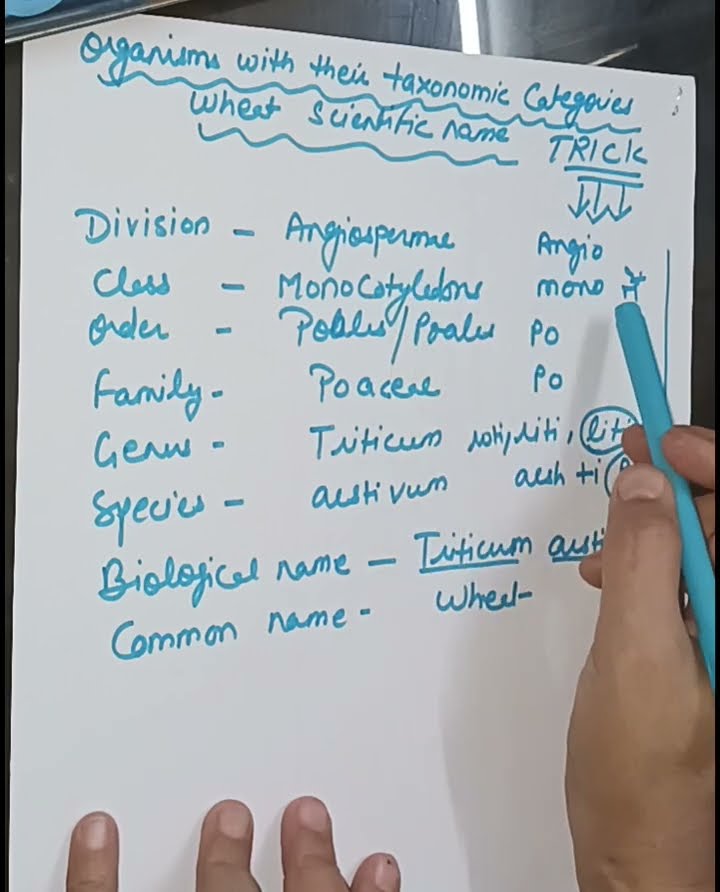 Organisms with their taxonomic Categories
Wheat Scientific name TRICK
Division - Angiospermae Angio
Class - Monocotyledons mono
Order - Polales/Poales PO
Family - Poaceae PO
Genus - Triticum
Species - aestivum aesh ti
Biological name - Triticum
Common name - Wheat